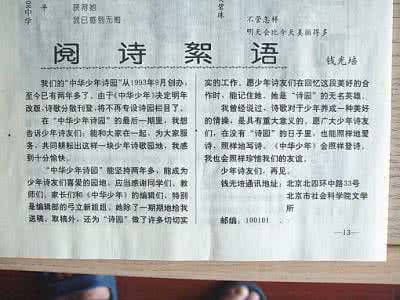 获诗园
我已感到无憾
不管怎样
明天会比今天美丽得多
阅诗絮语
钱光培
我们的“中华少年诗园”从1993年9月创办，
至今已有两年多了。由于《中华少年》决定明年
改版，诗歌分散刊登，将不再专设诗园栏目了。
在“中华少年诗园”的最后一期里，我想
告诉少年诗友们：能和大家在一起，为大家服
务，共同耕耘出这样一块少年诗歌园地，我感
到十分愉快。
“中华少年诗园”能坚持两年多，能成为
少年诗友们喜爱的园地，应当感谢同学们、教
师们、家长们和《中华少年》的编辑们，特别
是编辑部的弓立新姐姐，她除了一期期地给我
送稿，取稿外，还为“诗园”做了许多切切实
实的工作。愿少年诗友们在回忆这段美好的合
作时，能记住她。她是“诗园”的无名英雄。
我曾经说过，诗歌对于少年养成一种美好
的情操，是具有重大意义的。愿广大少年诗友
们，在没有“诗园”的日子里，也能照样地爱
诗，照样地写诗。《中华少年》会照样登诗。
我也会照样珍惜我们的友谊。
少年诗友们，再见。
钱光培通讯地址：北京北四环中路33号
北京市社会科学院文学
所
邮编：100101
—13—